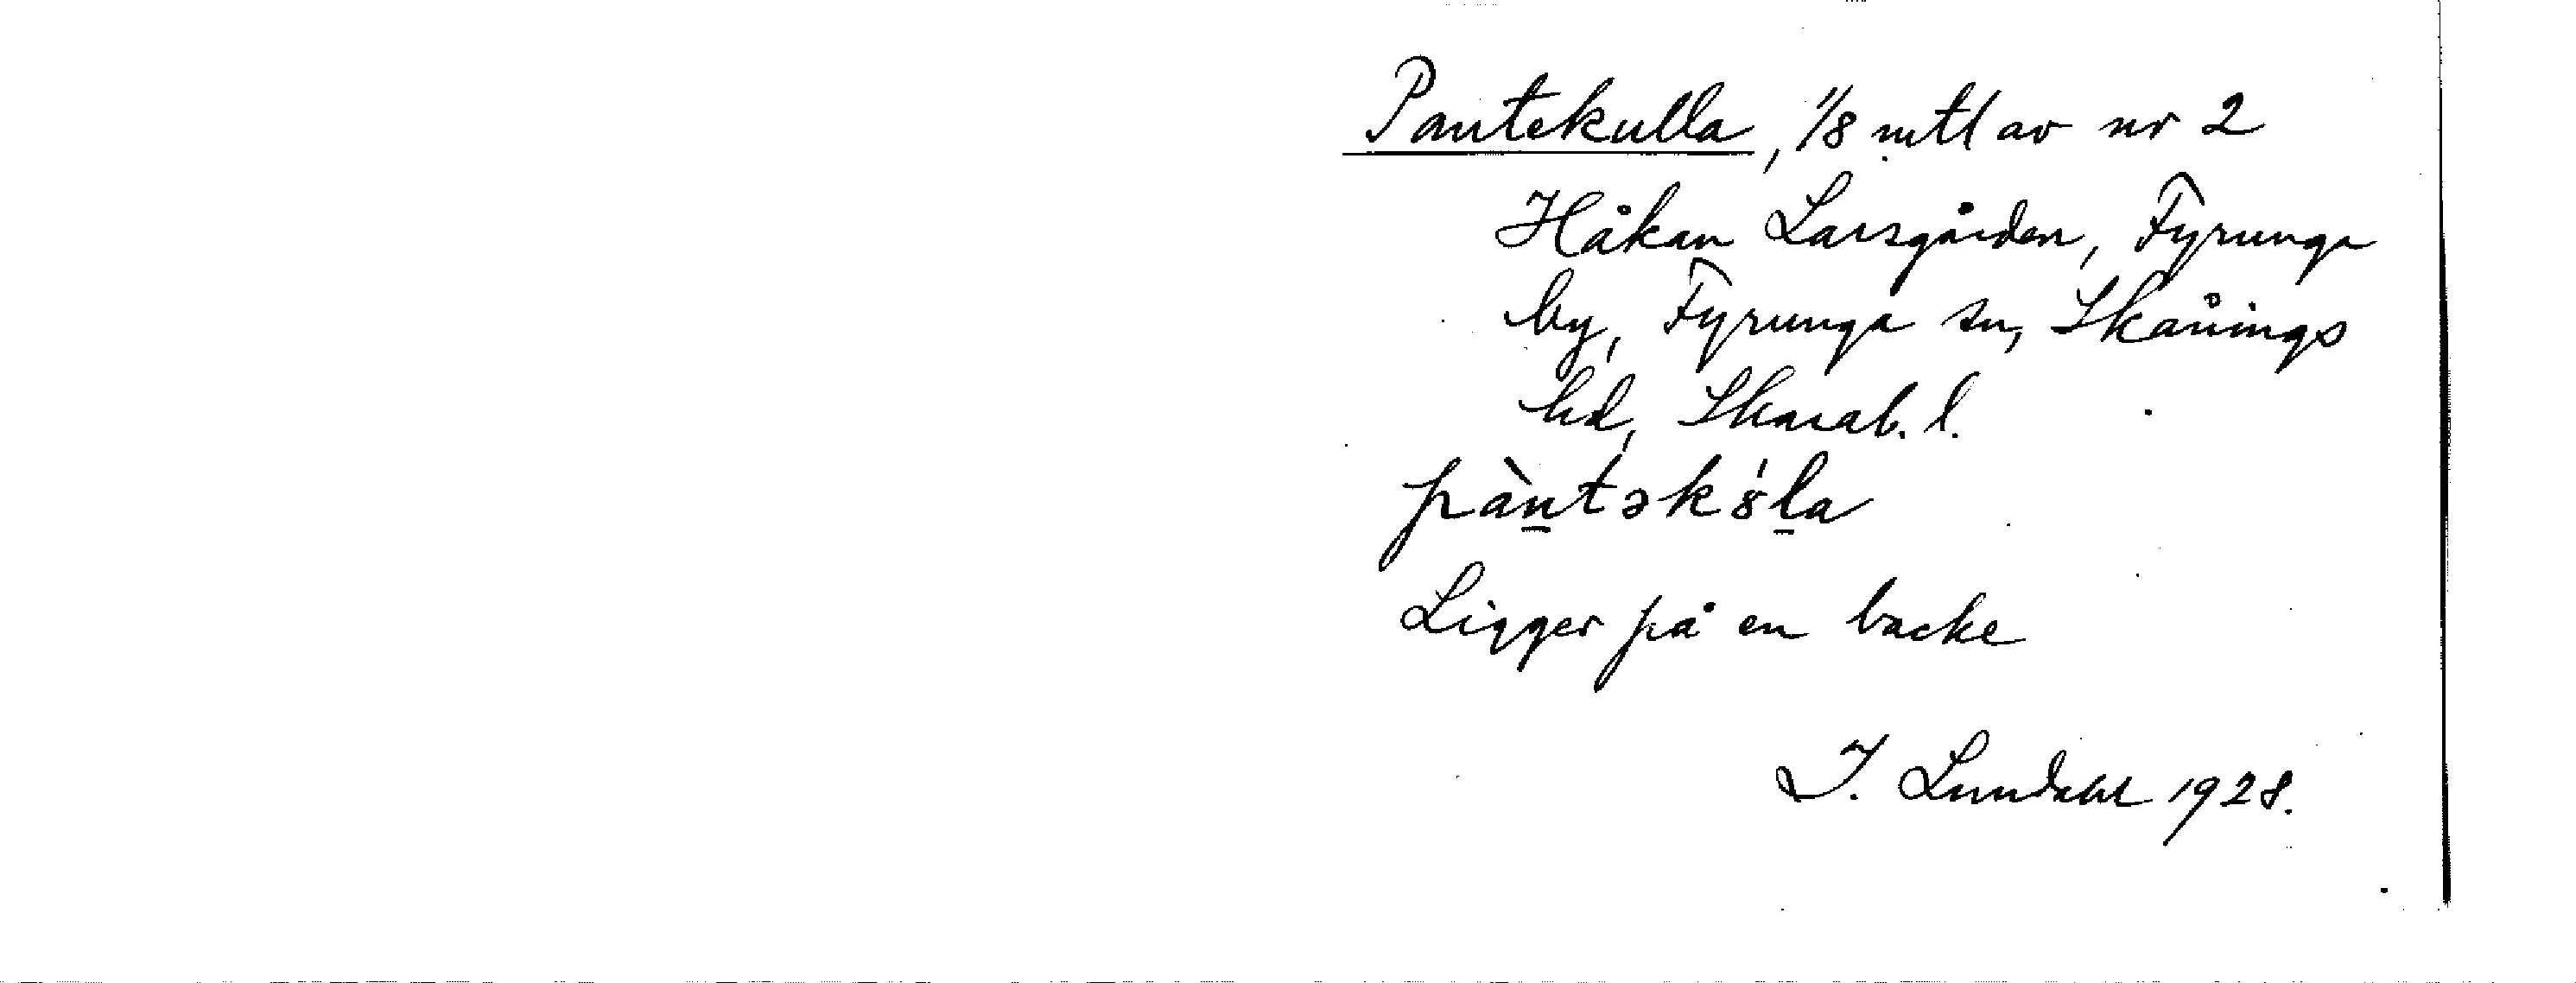 Pantekulla, 1/8 mtl av nr 2
Håkan Larsgården, Fyrunga
by, Fyrunga sn, Skånings
hd, Skarab. l.
pàn̲tək8́l̲a
Ligger på en backe
I. Lundahl 1928.